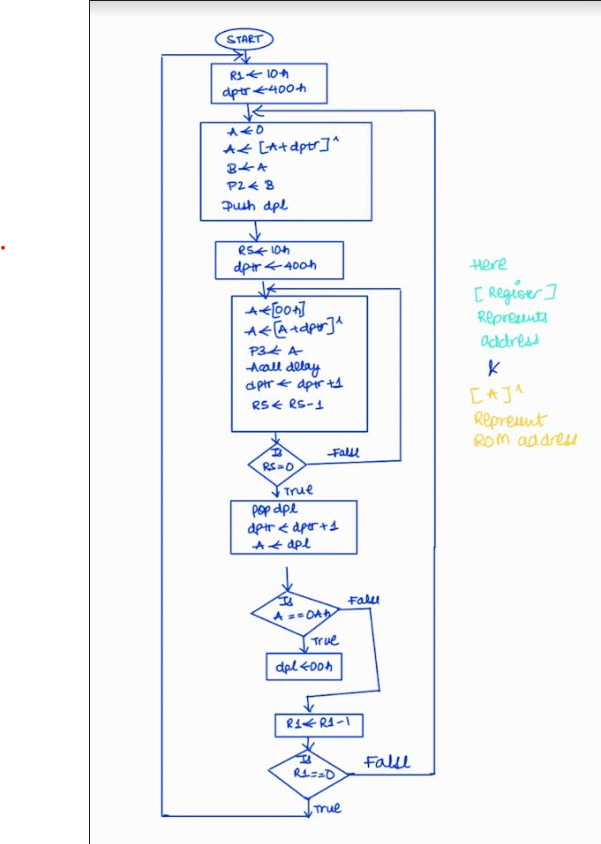 START
R1 ← 10h
dptr ← 400h
A ← 0
A ← [A+dptr]^
B ← A
P2 ← B
Push dpl
R5 ← 10h
dptr ← 400h
A ← [00h]
A ← [A+dptr]^
P3 ← A
Acall delay
dptr ← dptr+1
R5 ← R5-1
Is
R5=0
False
True
pop dpl
dptr ← dptr+1
A ← dpl
Is
A ==0Ah
False
True
dpl ← 00h
R1 ← R1-1
Is
R1==0
False
True
Here
[Register]
Represents
address
&
[A]^
Represent
ROM address